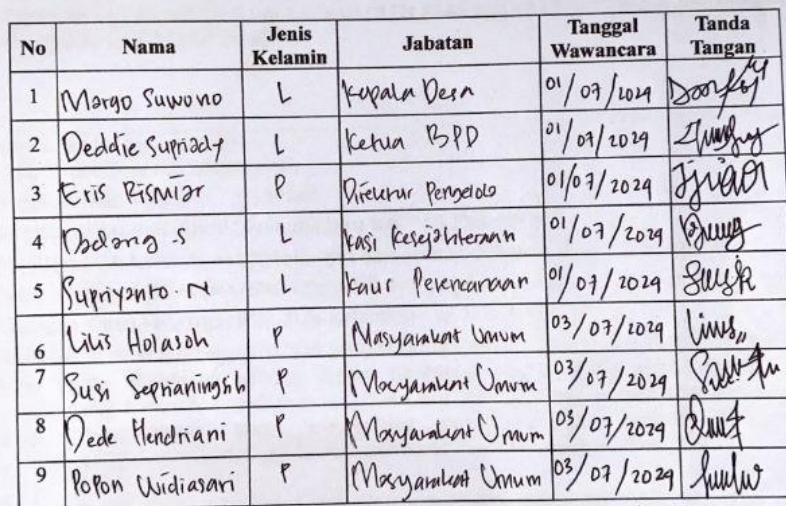 No Nama Jenis Kelamin Jabatan Tanggal Wawancara Tanda Tangan
1 Margo Suwono L Kepala Desa 01/07/2024
2 Deddie Supriady L Ketua BPD 01/07/2024
3 Eris Rismiar P Direktur Pengelola 01/07/2024
4 Dadang .S L Kasi Kesejahteraan 01/07/2024
5 Supriyanto N L Kaur Perencanaan 01/07/2024
6 Lilis Holasoh P Masyarakat Umum 03/07/2024
7 Susi Seprianingsih P Masyarakat Umum 03/07/2024
8 Dede Hendriani P Masyarakat Umum 03/07/2024
9 Popon Widiasari P Masyarakat Umum 03/07/2024